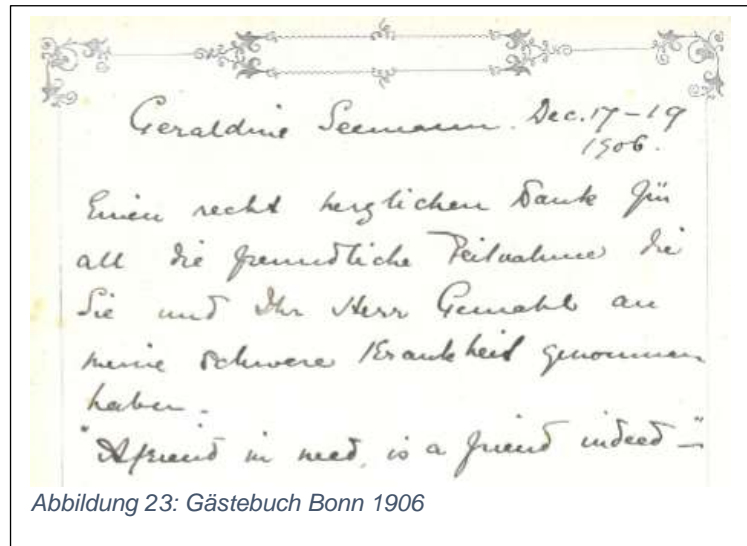 Geraldine Seemann. Dec. 17-19
1906.
Einen recht herzlichen Dank für
all die freundliche Teilnahme die
Sie und Ihr Herr Gemahl an
meine schwere Krankheit genommen
haben.
"A friend in need, is a friend indeed—"
Abbildung 23: Gästebuch Bonn 1906